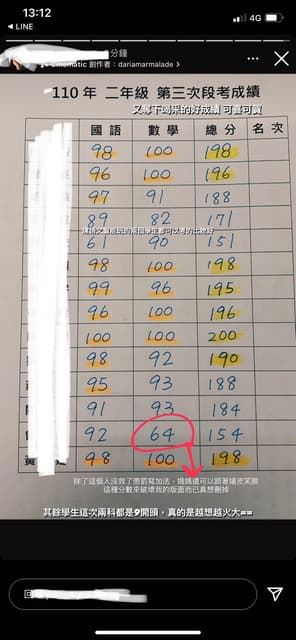 13:12
4G
LINE
分鐘
Cinematic 創作者：dariamarmalade >
110年 二年級 第三次段考成績
又奪下喝采的好成績 可喜可賀
國語 數學 總分 名次
98 100 198
96 100 196
97 91 188
89 82 171
61 90 151
98 100 198
99 96 195
96 100 196
100 100 200
98 92 190
95 93 188
91 93 184
92 64 154
98 100 198
除了這個人沒救了
媽媽還可以跟著嬉皮笑臉
這種分數來破壞我的版面而已真想刪掉
其餘學生這次兩科都是9開頭，真的是越想越火大==